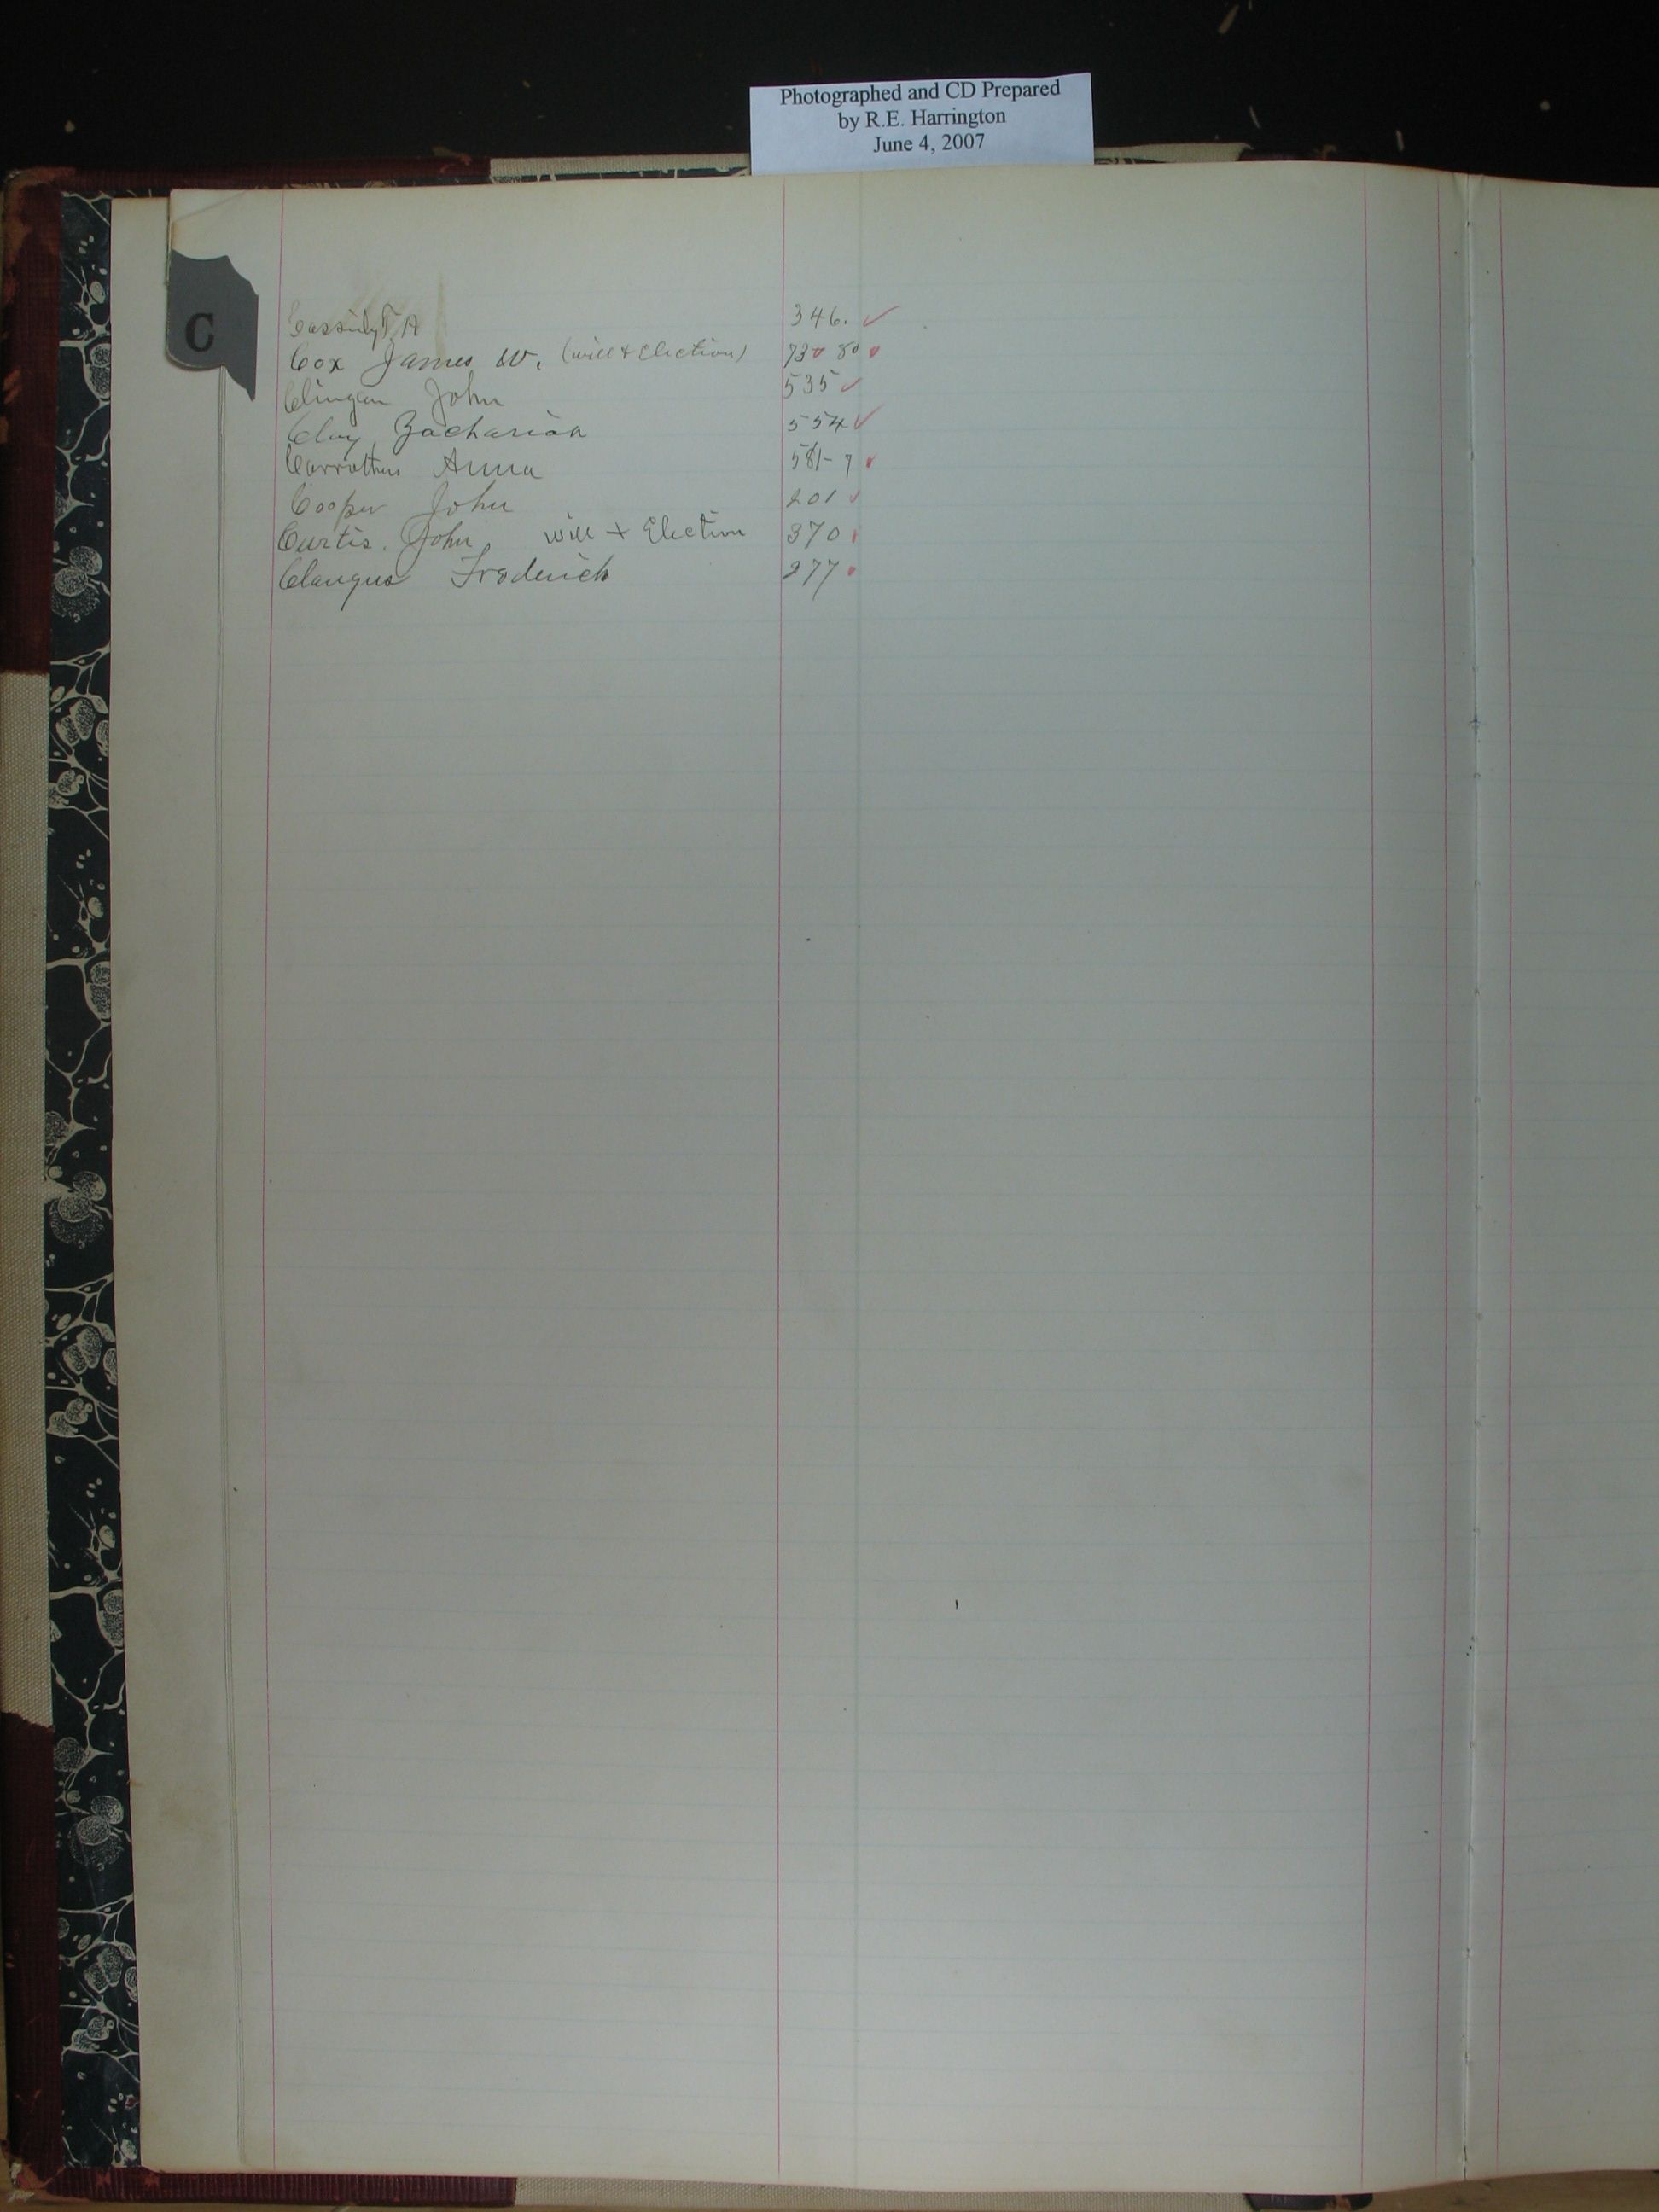 Photographed and CD Prepared
by R.E. Harrington
June 4, 2007
C
Cassidy T A 346.
Cox James W. (will + Election) 73 80
Clingan John 535
Clay Zachariah 554
Carrothers Anna 581-7
Cooper John 201
Curtis. John, will + Election 370
Claugus Frederick 277